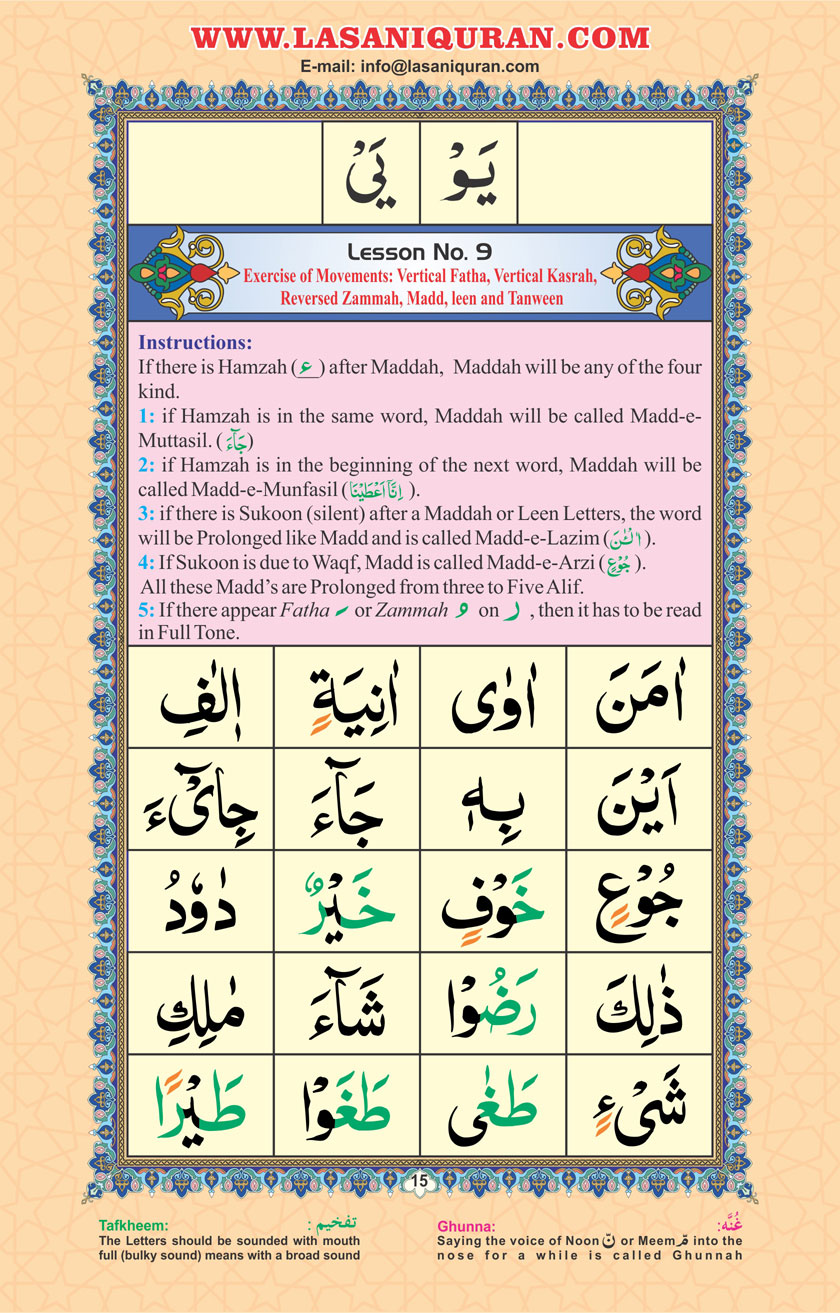 WWW.LASANIQURAN.COM
E-mail: info@lasaniquran.com
يَوْ يَيْ
Lesson No. 9
Exercise of Movements: Vertical Fatha, Vertical Kasrah,
Reversed Zammah, Madd, leen and Tanween
Instructions:
If there is Hamzah (ء) after Maddah, Maddah will be any of the four
kind.
1: if Hamzah is in the same word, Maddah will be called Madd-e-
Muttasil. (جَآءَ)
2: if Hamzah is in the beginning of the next word, Maddah will be
called Madd-e-Munfasil (اِنَّآ اَعْطَيْنَا).
3: if there is Sukoon (silent) after a Maddah or Leen Letters, the word
will be Prolonged like Madd and is called Madd-e-Lazim ( ).
4: If Sukoon is due to Waqf, Madd is called Madd-e-Arzi (جُوْعٍ).
All these Madd’s are Prolonged from three to Five Alif.
5: If there appear Fatha َ or Zammah ُ on ر , then it has to be read
in Full Tone.
اٰمَنَ اٰوٰى اٰنِيَةٍ اٖلٰفِ
اَيْنَ بِهٖ جَآءَ جِایْٓءَ
جُوْعٍ خَوْفٍ خَيْرٌ دَاوٗدُ
ذٰلِكَ رَضُوْا شَآءَ مٰلِكِ
شَیْءٍ طَغٰى طَغَوْا طَيْرًا
15
Tafkheem: تفخيم :
The Letters should be sounded with mouth
full (bulky sound) means with a broad sound
Ghunna: غُنَّه:
Saying the voice of Noon نّ or Meem مّ into the
nose for a while is called Ghunnah